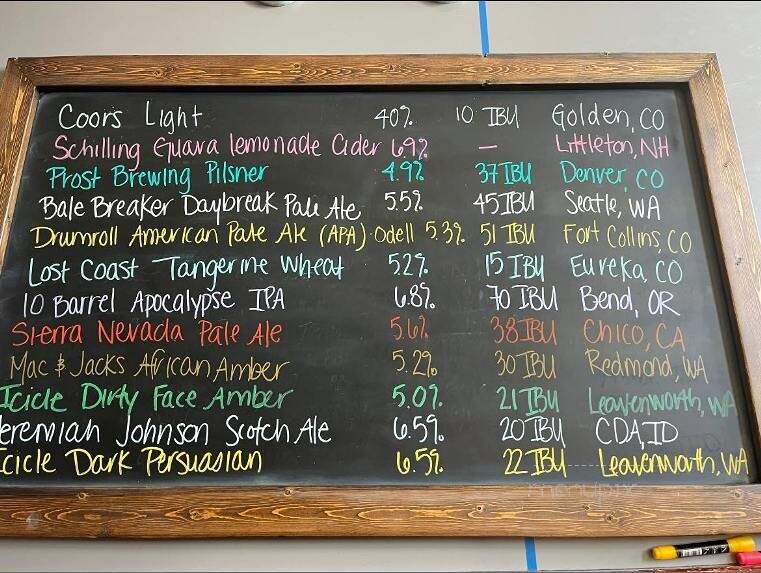 Coors Light 40% 10 IBU Golden, CO
Schilling Guava lemonade Cider 6.9% — Littleton, NH
Prost Brewing Pilsner 4.9% 37 IBU Denver, CO
Bale Breaker Daybreak Pale Ale 5.5% 45 IBU Seatle, WA
Drumroll American Pale Ale (APA) Odell 5.3% 51 IBU Fort Collins, CO
Lost Coast Tangerine Wheat 52% 15 IBU Eureka, CO
10 Barrel Apocalypse IPA 6.8% 70 IBU Bend, OR
Sierra Nevada Pale Ale 5.6% 38 IBU Chico, CA
Mac & Jacks African Amber 5.2% 30 IBU Redmond, WA
Icicle Dirty Face Amber 5.0% 21 IBU Leavenworth, WA
eremiah Johnson Scotch Ale 6.5% 20 IBU CDA, ID
Icicle Dark Persuasian 6.5% 22 IBU Leavenworth, WA